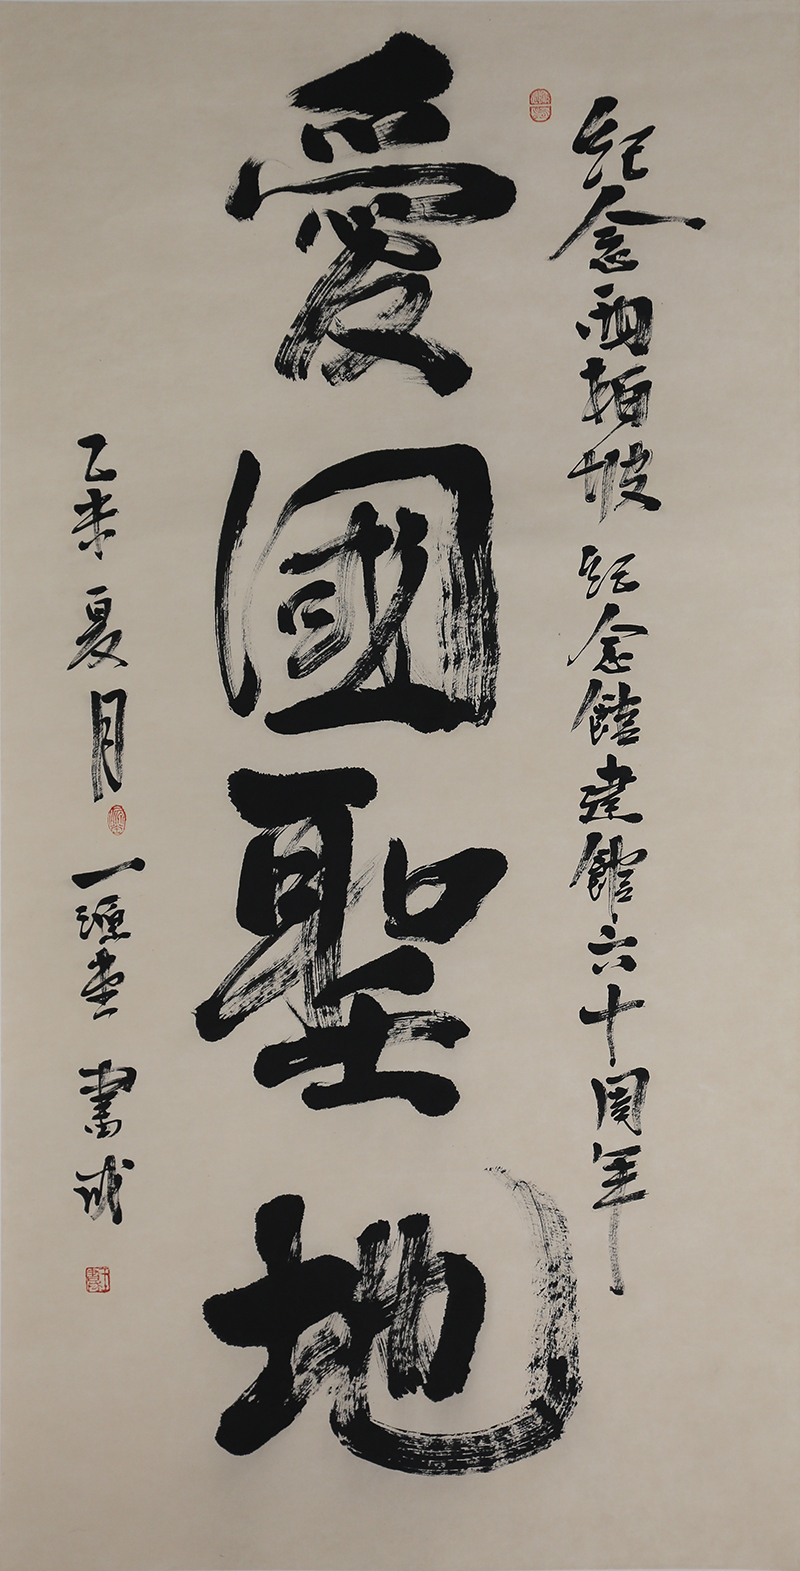 紀念西柏坡 紀念館建館六十周年
愛國聖地
乙未夏月 一 堂 書